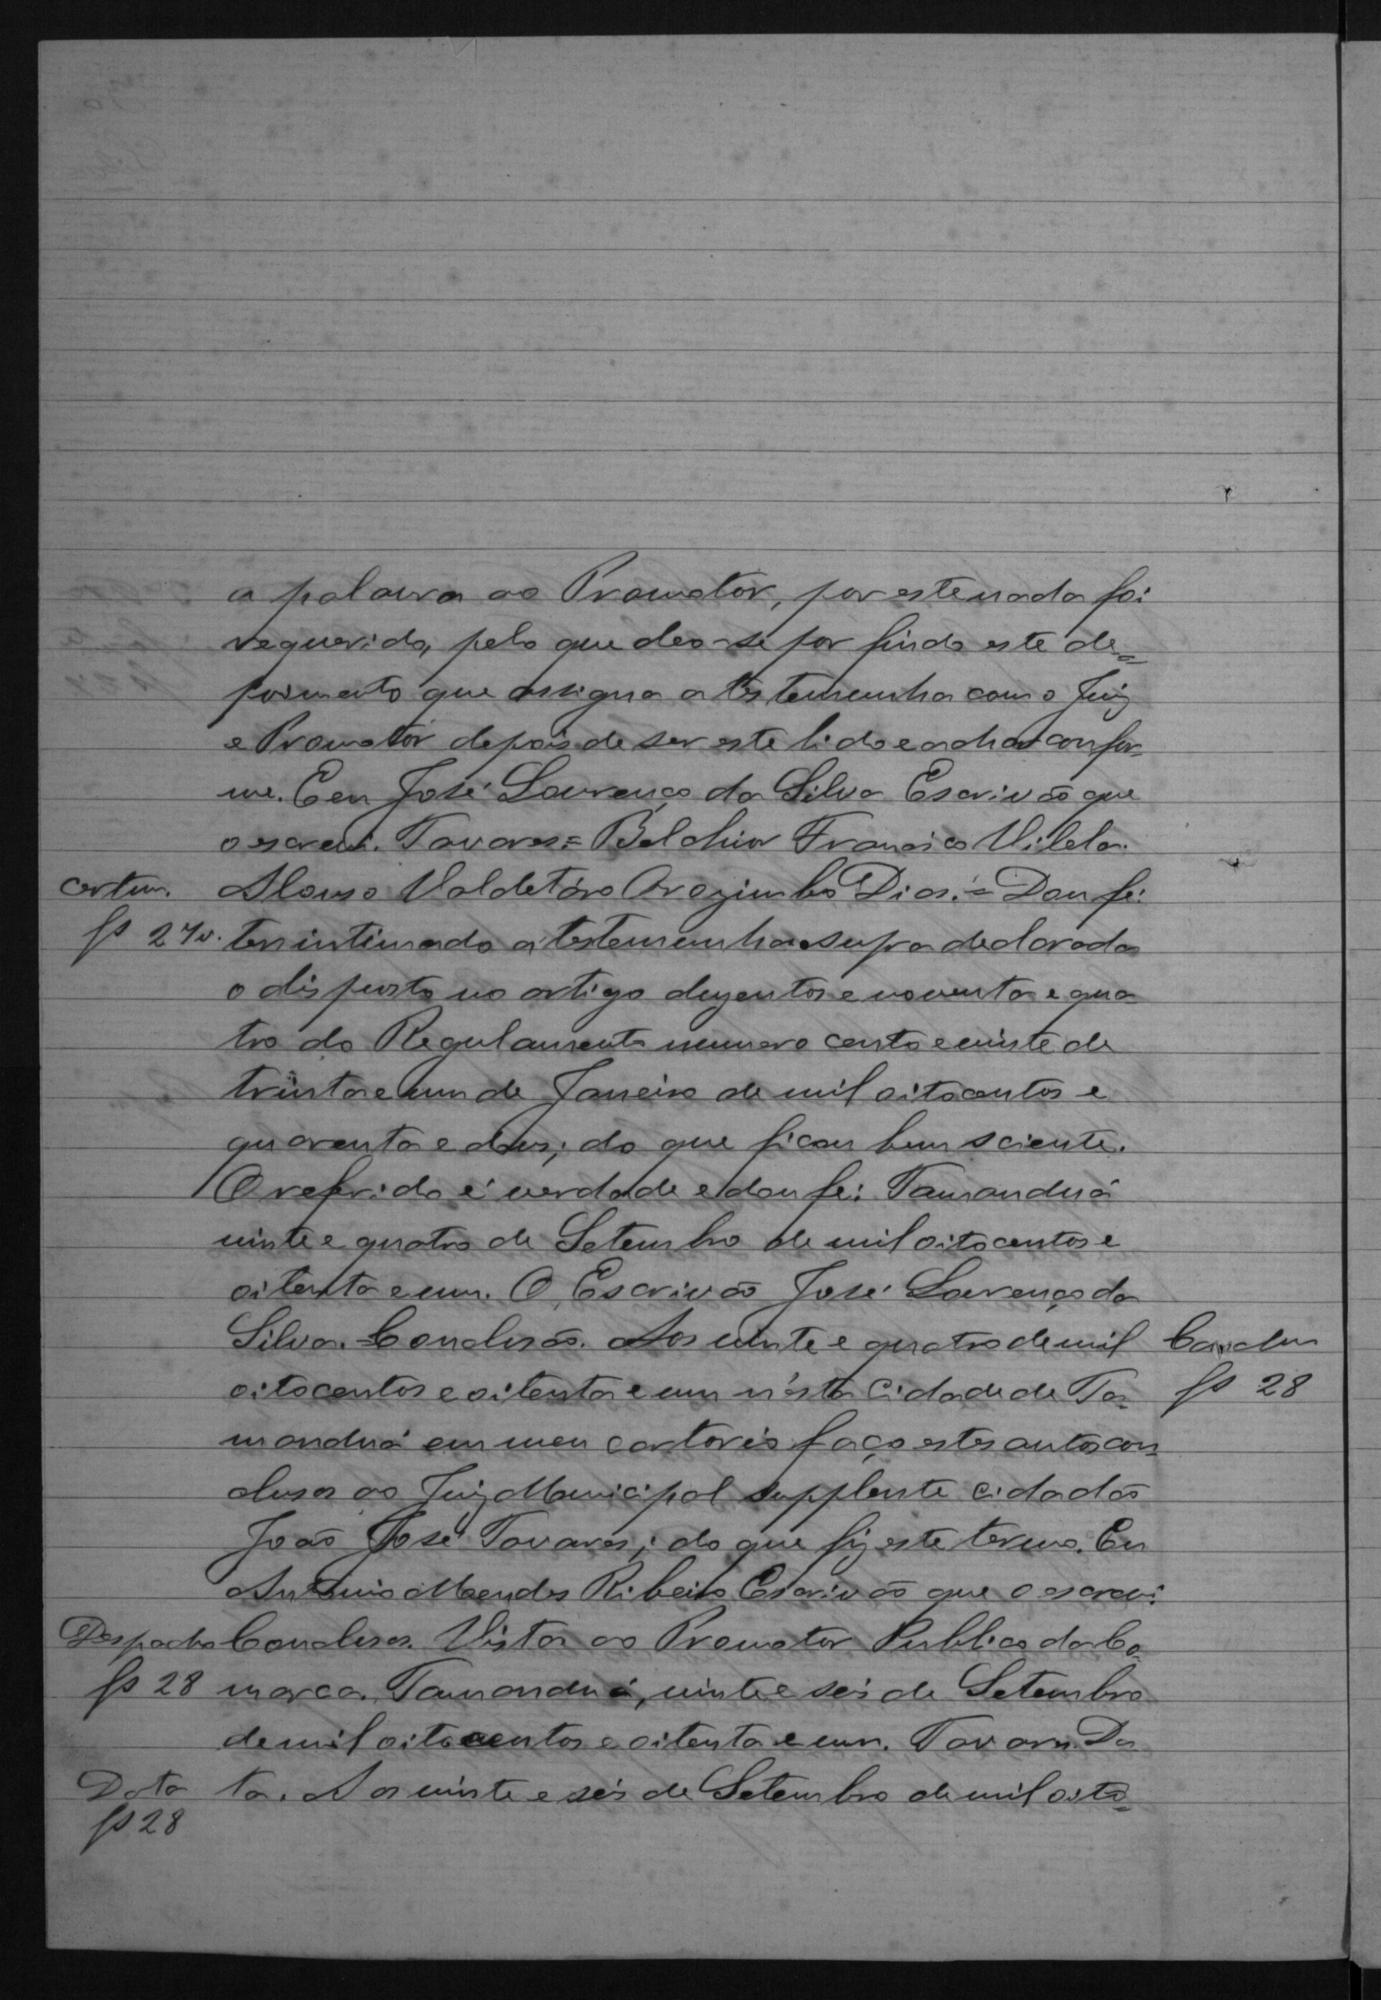 a palavra ao Promotor, por este nada foi
requerido, pelo que deo-se por findo este de=
poimento que assigna a testemunha com o Juiz
e Promotor depois de ser este lido e achar confor-
me. E eu José Lourenço da Silva Escrivão que
o escrevi. Tavares = Belchior Francisco Vilela.
certim.
Alonso Valdetáro Orozimbo Dias. = Dou fé:
fs 27v.
ter intimado a testemunha supra declarada
o disposto no artigo duzentos e noventa e qua
tro do Regulamento numero cento e vinte de
trinta e um de Janeiro de mil oitocentos e
quarenta e dous; do que ficou bem sciente.
O referido é verdade e dou fé: Tamanduá
vinte e quatro de Setembro de mil oitocentos e
oitenta e um. O Escrivão José Lourenço da
Silva. = Conclusão. Aos vinte e quatro de mil
Conclu
oitocentos e oitenta e um n'esta Cidade de Ta-
fs 28
manduá em meu cartorio faço estes autos con
clusos ao Juiz Municipal supplente cidadão
João José Tavares; do que fiz este termo. Eu
Antonio Mendes Ribeiro Escrivão que o escrevi
Despacho
Conclusos. Vista ao Promotor Publico da Co-
fs 28
marca. Tamanduá, vinte e seis de Setembro
de mil oitocentos e oitenta e um. Tavares. Da
Data
ta. Aos vinte e seis de Setembro de mil oito=
fs 28